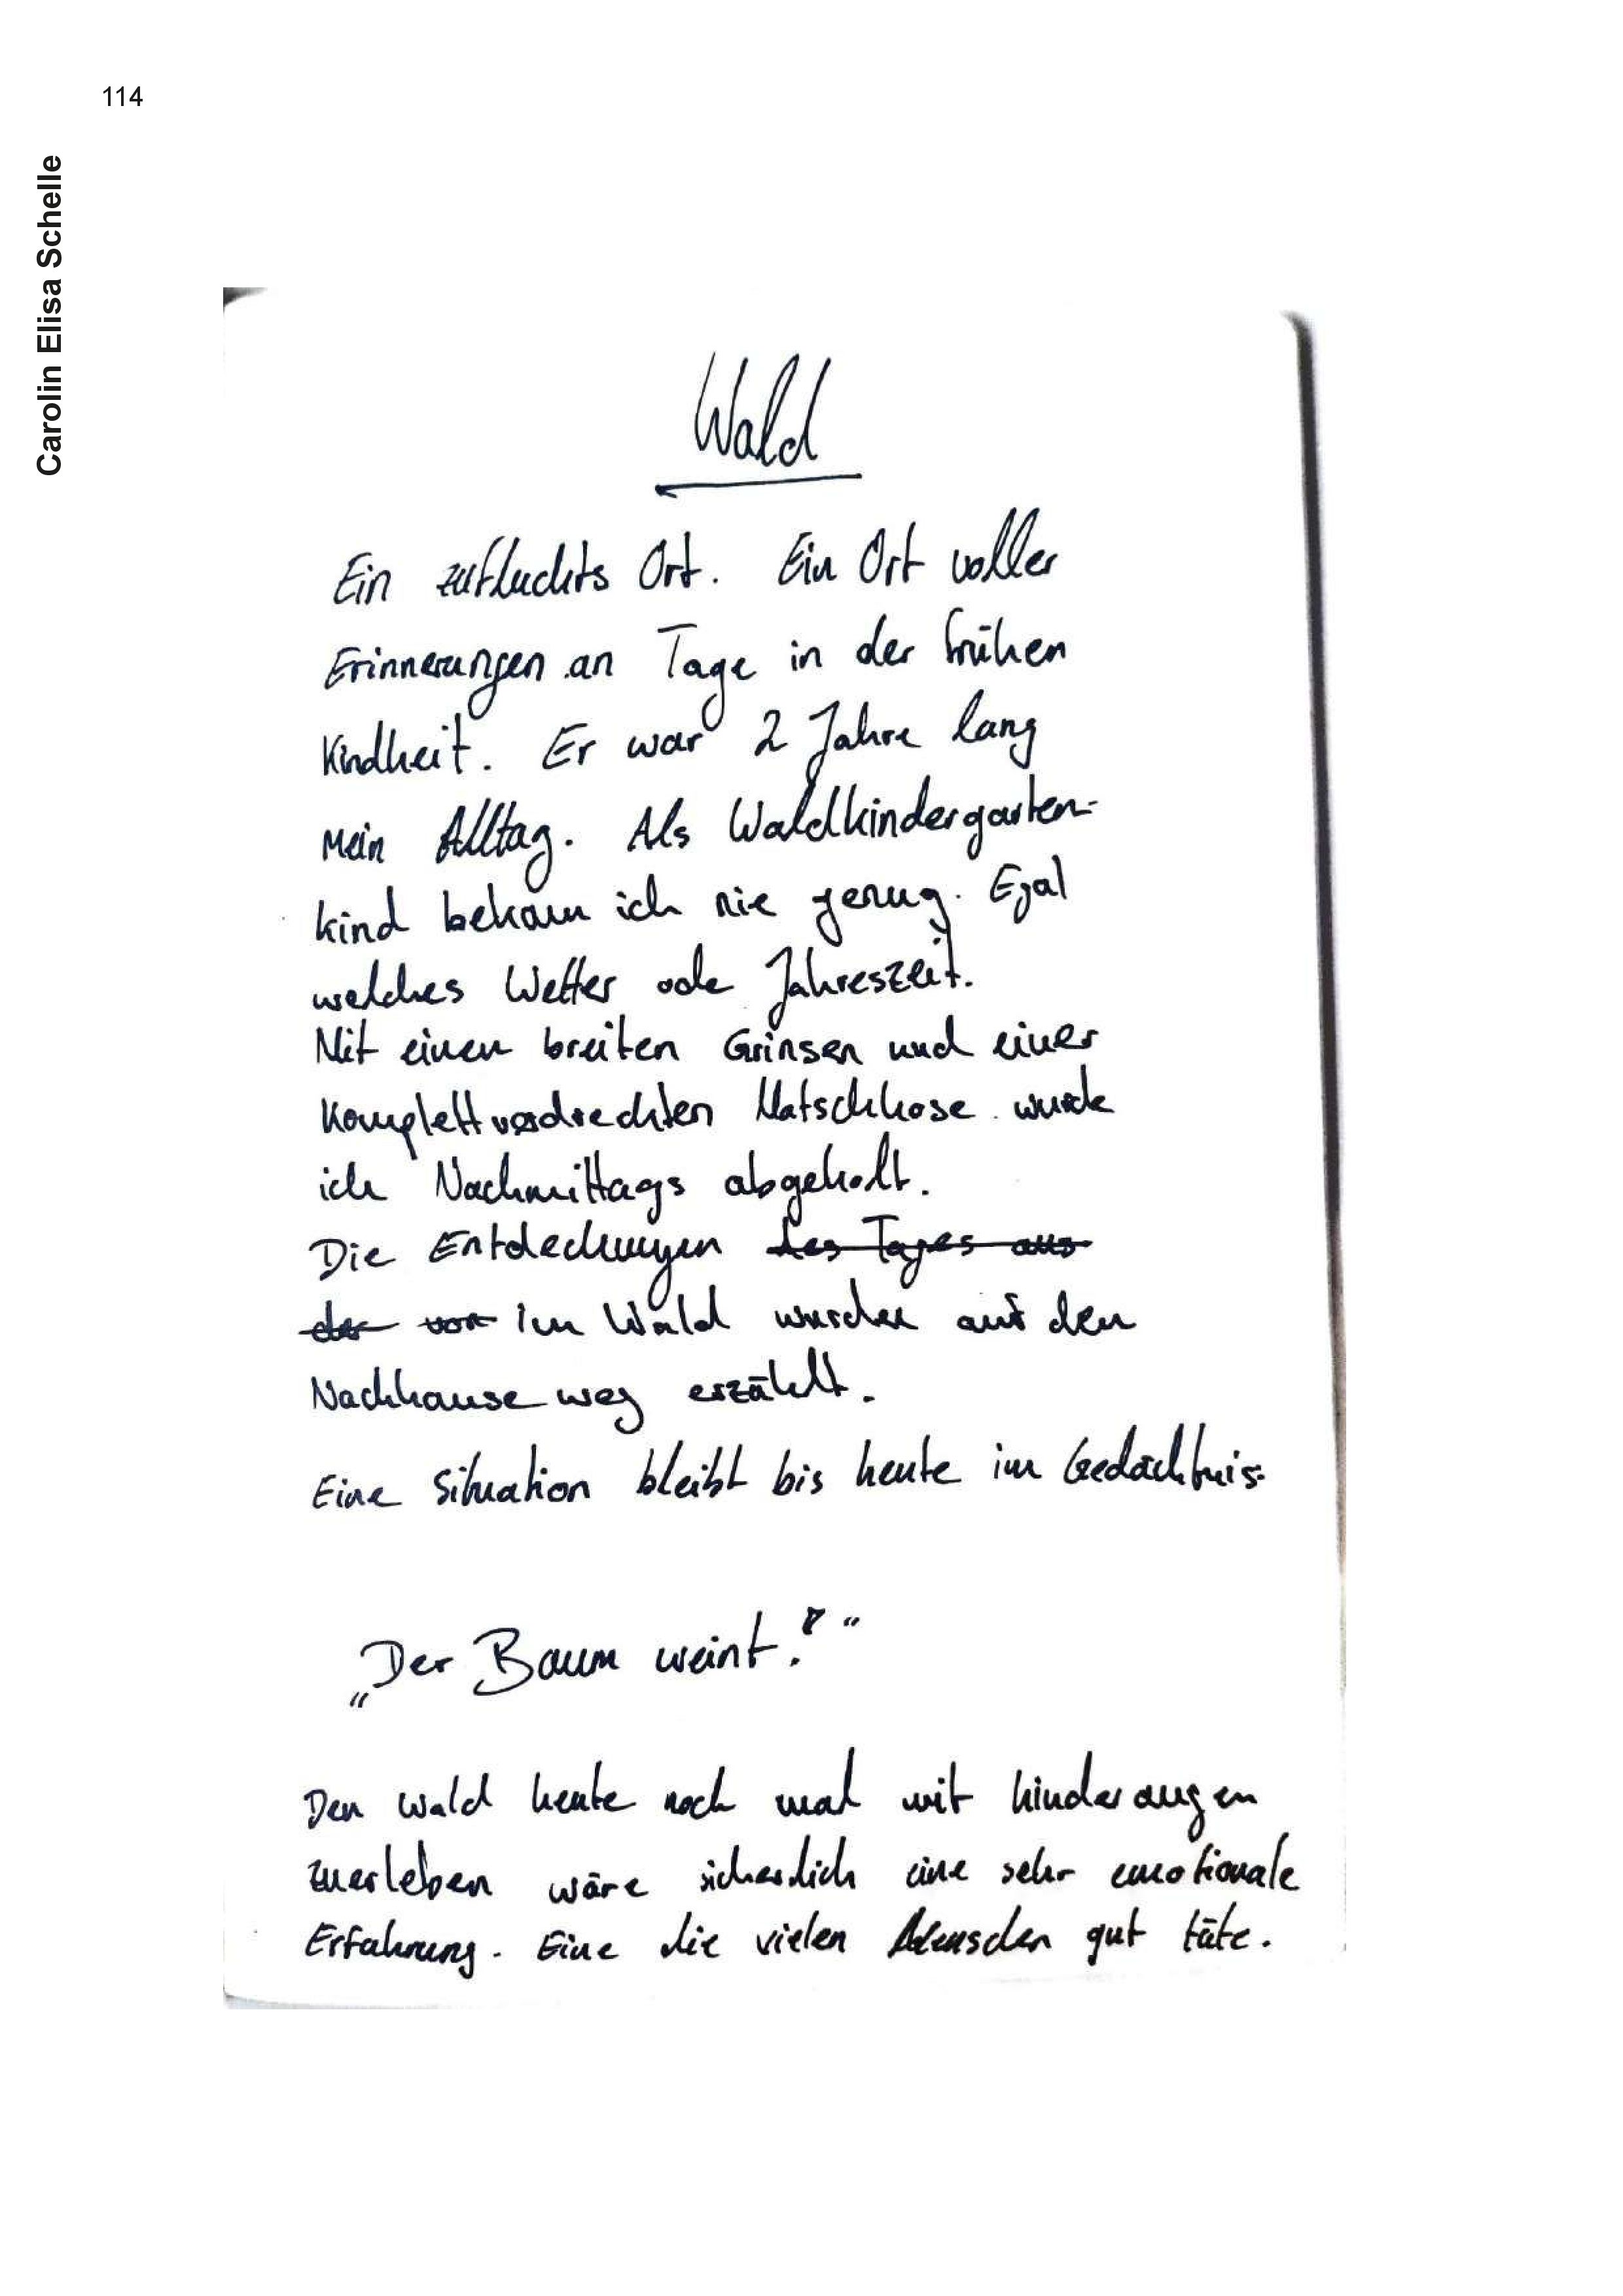 114
Carolin Elisa Schelle
Wald
Ein zufluchts Ort. Ein Ort voller
Erinnerungen an Tage in der frühen
Kindheit. Er war 2 Jahre lang
Mein Alltag. Als Waldkindergarten-
kind bekam ich nie genug. Egal
welches Wetter ode Jahreszeit.
Mit einen breiten Grinsen und einer
Komplett verdrechten Matschhose wurde
ich Nachmittags abgeholt.
Die Entdeckungen des Tages aus
der von im Wald wurden auf den
Nachhause weg erzählt.
Eine Situation bleibt bis heute im Gedächtnis.
„Der Baum weint?“
Den Wald heute noch mal mit kinderaugen
zuerleben wäre sicherlich eine sehr emotionale
Erfahrung. Eine die vielen Menschen gut täte.